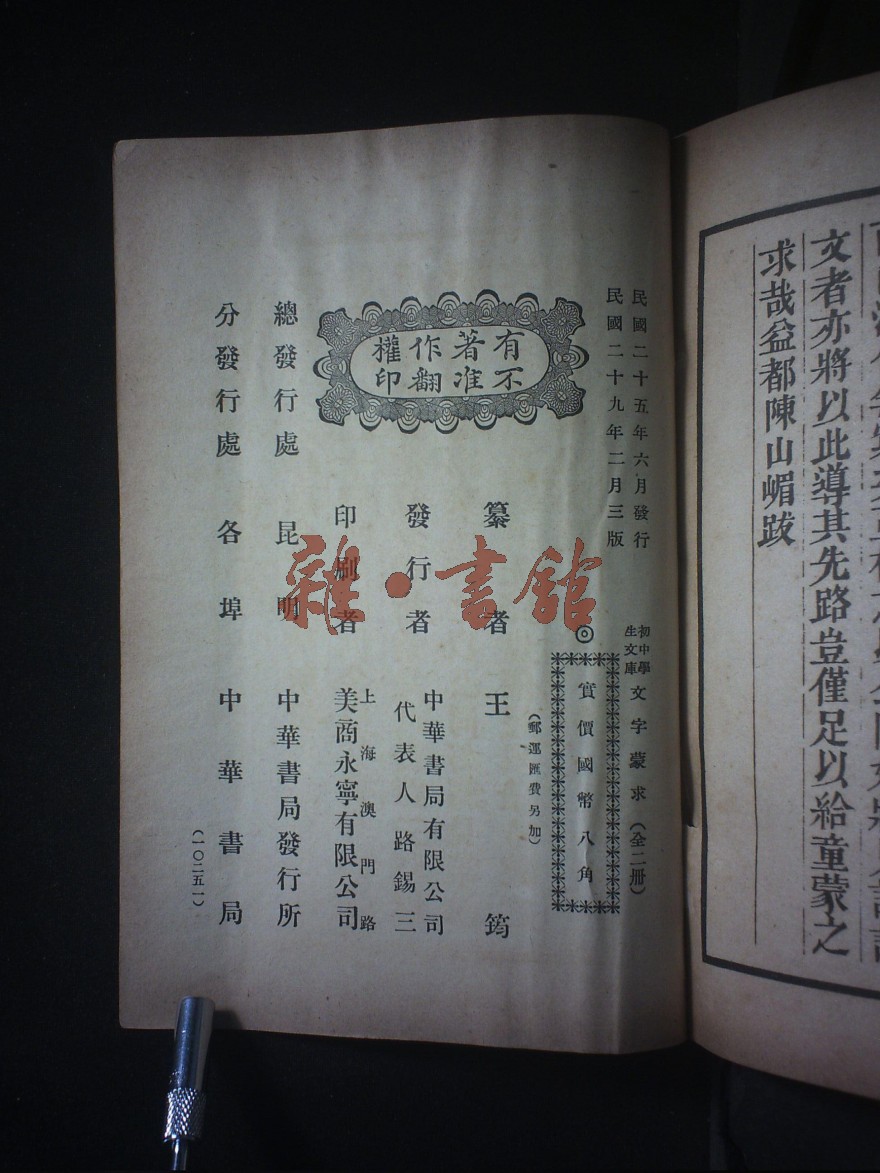 文者亦將以此導其先路豈僅足以給童蒙之
求哉益都陳山嵋跋
民國二十五年六月發行
民國二十九年二月三版
初中學生文庫 文字蒙求（全二冊）
◎實價國幣八角
（郵運匯費另加）
有著作權
不准翻印
纂者 王筠
發行者 中華書局有限公司
代表人路錫三
印刷者 上海澳門路
美商永寧有限公司
總發行處 昆明 中華書局發行所
分發行處 各埠 中華書局
（一〇二五一）
雜·書館